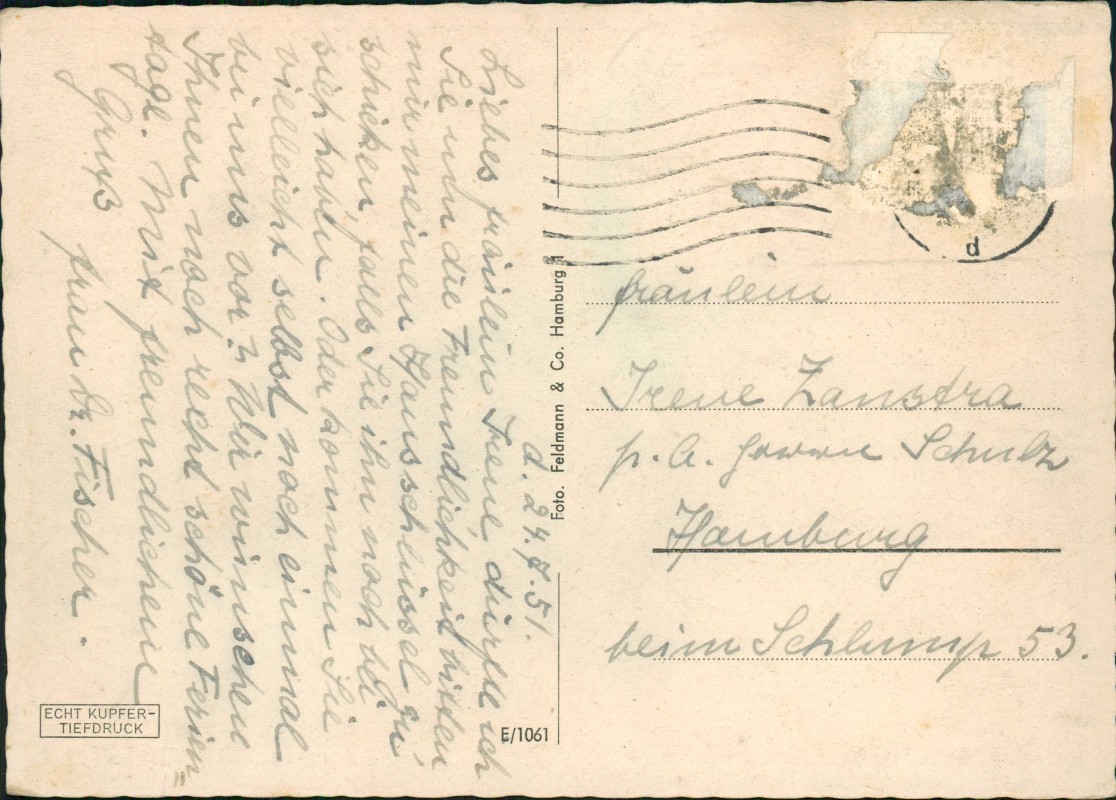 d. 24.7.51.
Liebes Fräulein Irene dürfte ich
Sie um die Freundlichkeit bitten
mir meinen Hausschlüssel zu
schicken, falls Sie ihn noch bei
sich haben. Oder kommen Sie
vielleicht selbst noch einmal
bei uns vor? Wir wünschen
Ihnen noch recht schöne Ferien=
tage. Mit freundlichem
Gruß
Frau Dr. Fischer.
ECHT KUPFER-
TIEFDRUCK
E/1061
Foto. Feldmann & Co. Hamburg 1
d
Fräulein
Irene Zanstra
p. A. Herrn Schulz
Hamburg
beim Schlump 53.